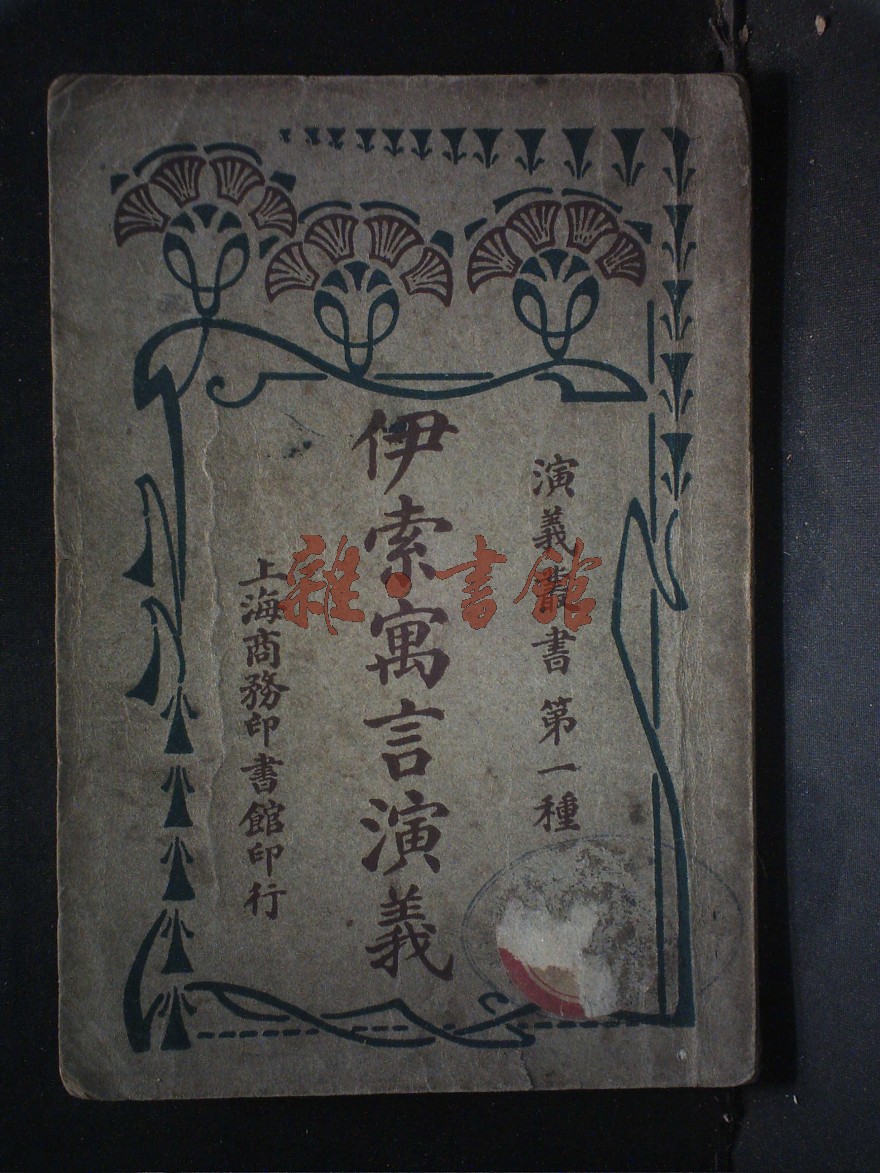 演義叢書 第一種
伊索寓言演義
上海商務印書館印行
雜·書館